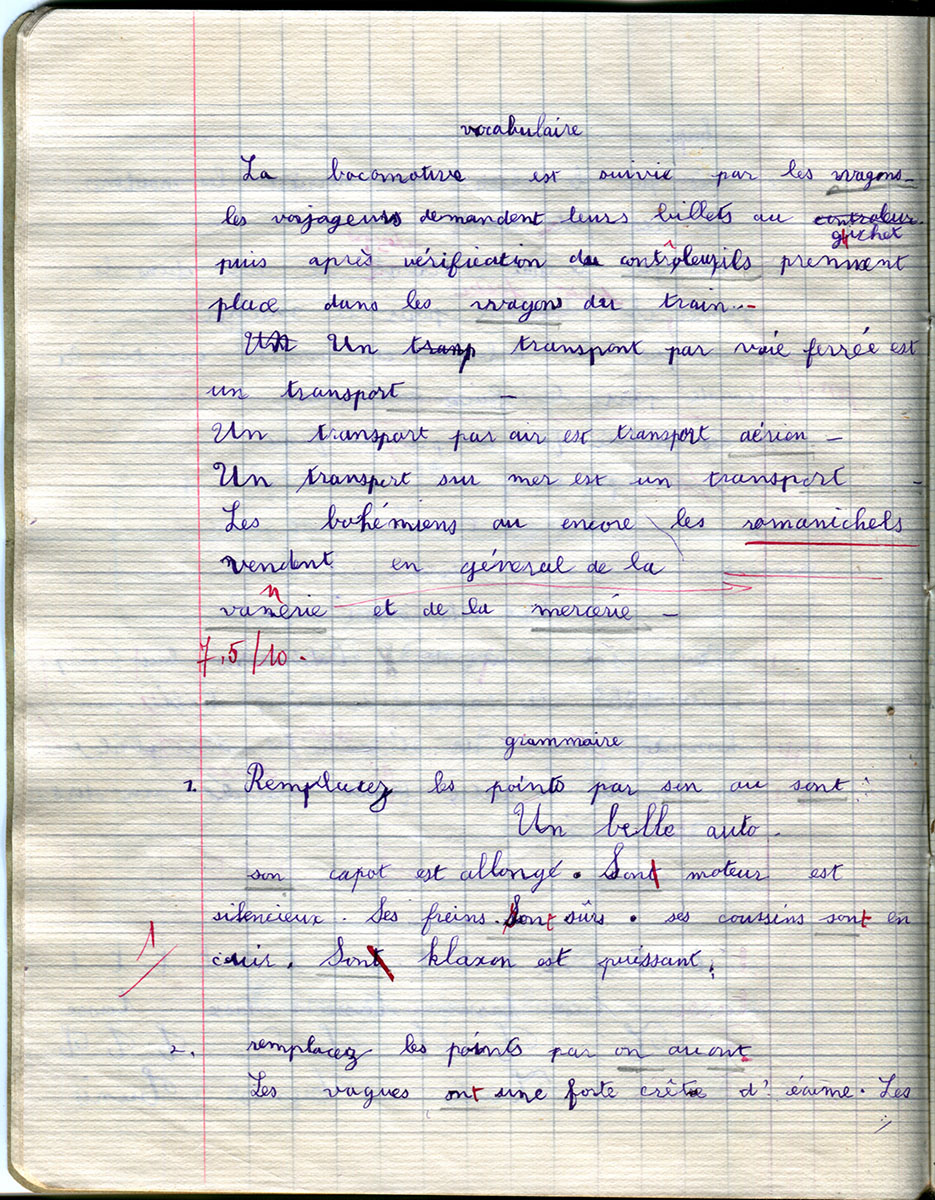 vocabulaire
La locomotive est suivie par les wagons -
les voyageurs demandent leurs billets au controleur.
guichet
puis après vérification du contrôleur ils prennent
place dans les wagons du train. -
Un Un transp transpont par voie ferrée est
un transport -
Un transport par air est transport aérien -
Un transport sur mer est un transport -
Les bohémiens ou encore les romanichels
vendent en géneral de la
vannerie et de la mercerie -
7,5/10.
grammaire
1. Remplacez les points par son ou sont :
Un belle auto.
son capot est allongé. Sont moteur est
silencieux. Ses freins sont sûrs. ses coussins sont en
1
cuir. Sont klaxon est puissant.
2. remplacez les points par on ou ont
Les vagues ont une forte crête d'écume. Les